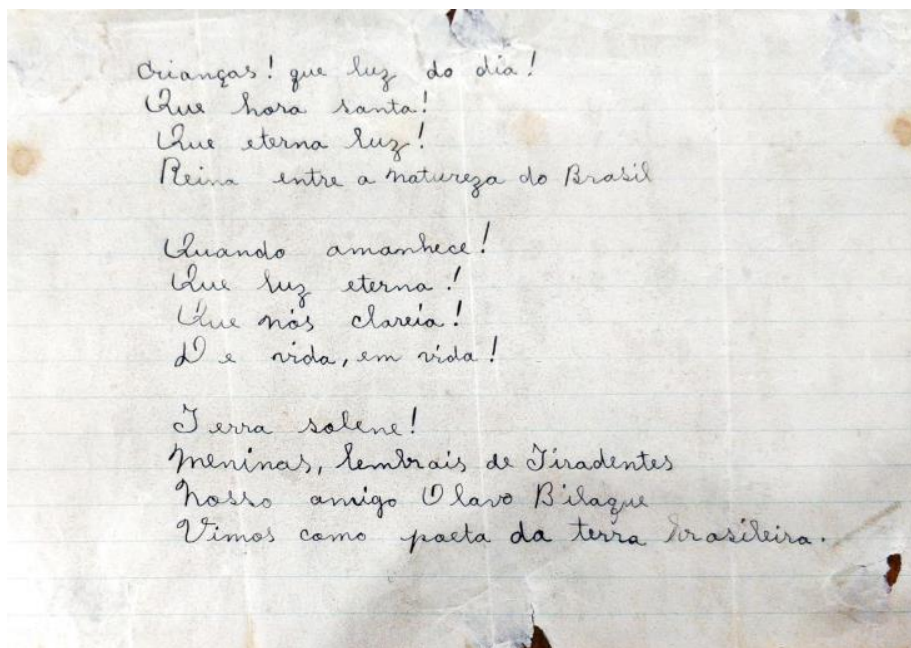 Crianças! que luz do dia!
Que hora santa!
Que eterna luz!
Reina entre a natureza do Brasil
Quando amanhece!
Que luz eterna!
Que nós clareia!
De vida, em vida!
Terra solene!
Meninas, lembrais de Tiradentes
Nosso amigo Olavo Bilaque
Vimos como poeta da terra brasileira.